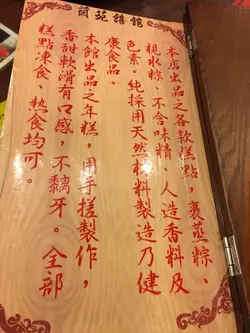 蘭苑饎館
本店出品之各款糕點，裹蒸粽、
梘水粽，不含味精 人造香料及
色素。純採用天然材料製造乃健
康食品。
本館出品之年糕，用手搓製作，
香甜軟滑有口感，不黐牙。全部
糕點凍食、熱食均可。